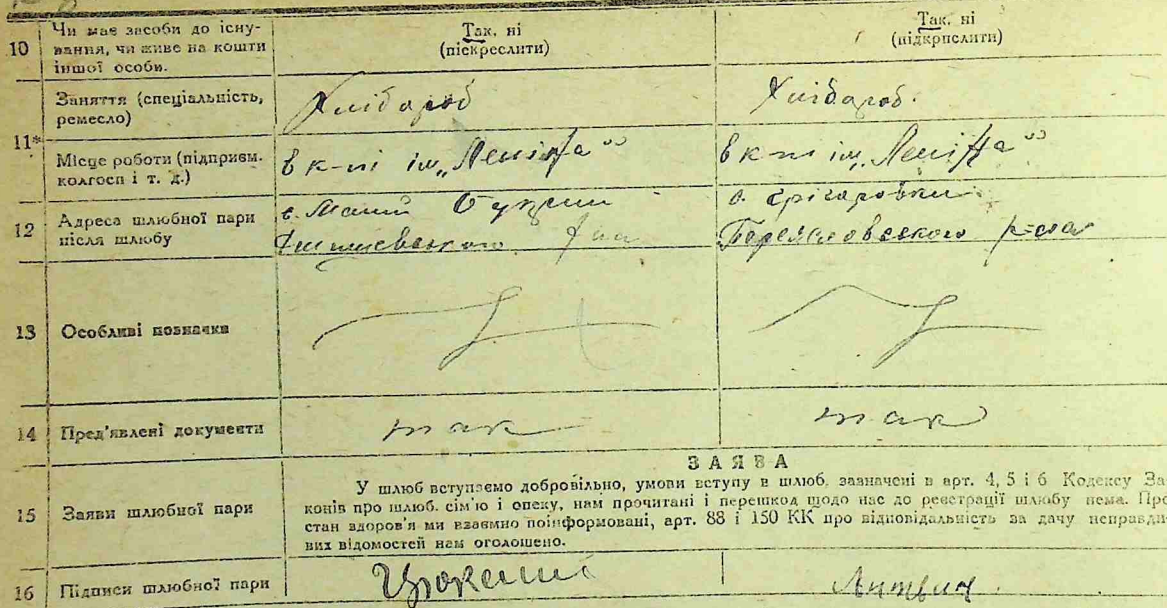 10 Чи має засоби до існування, чи живе на кошти іншої особи.
Так, ні
(піскреслити)
Так, ні
(підкрпслити)
11* Заняття (спеціальність, ремесло)
Хлібороб
Хлібороб.
Місце роботи (підприєм. колгосп і т. д.)
в к-пі ім. „Леніна"
в к-пі ім. „Леніна"
12 Адреса шлюбної пари після шлюбу
с. Малий
р-на
с. Грігоровки
р-на
13 Особливі позначки
14 Пред'явлені документи
так
так
15 Заяви шлюбної пари
ЗАЯВА
У шлюб вступаємо добровільно, умови вступу в шлюб, зазначені в арт. 4, 5 і 6 Кодексу За-
конів про шлюб, сім'ю і опеку, нам прочитані і перешкод щодо нас до реєстрації шлюбу нема. Про
стан здоров'я ми взаємно поінформовані, арт. 88 і 150 КК про відповідальність за дачу неправди-
вих відомостей нам оголошено.
16 Підписи шлюбної пари